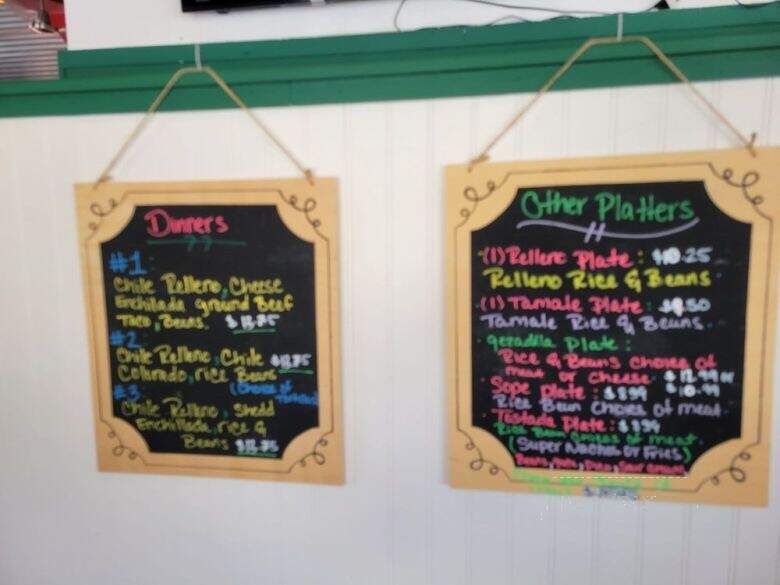 Dinners
#1
Chile Relleno, Cheese
Enchilada ground Beef
Taco, Beans.
#2
Chile Relleno, Chile
Colorado, rice Beans
(Choice of
#3
Chile Relleno, shedd
Enchilada, rice &
Beans
Other Platters
(1) Relleno Plate: $10.25
Relleno Rice & Beans
(1) Tamale Plate: $9.50
Tamale Rice & Beans.
Plate:
Rice & Beans choice of
meat or cheese $12.99 or
Sope Plate: $8.99 $10.99
Rice Bean Choies of meat.
Tostada Plate: $8.99
Rice Bean of meat.
(Super Nachos or Fries)
Beans,